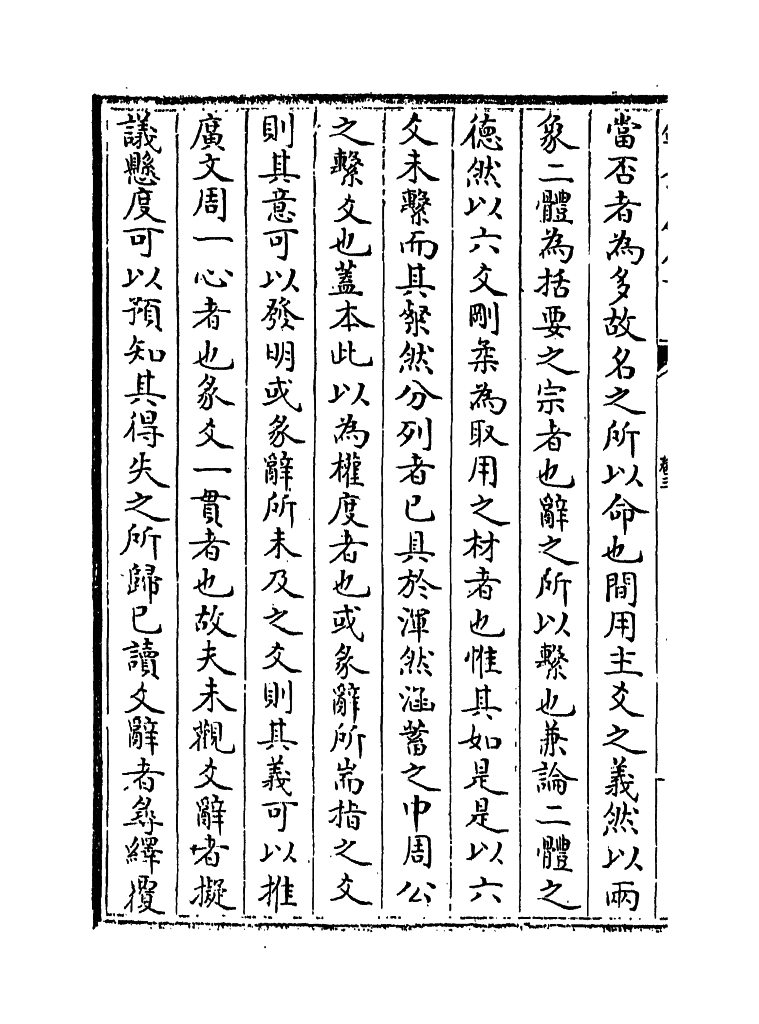 當否者為多故名之所以命也間用主爻之義然以兩
象二體為括要之宗者也辭之所以繫也兼論二體之
德然以六爻剛柔為取用之材者也惟其如是是以六
爻未繫而其粲然分列者已具於渾然涵蓄之中周公
之繫爻也蓋本此以為權度者也或彖辭所耑指之爻
則其意可以發明或彖辭所未及之爻則其義可以推
廣文周一心者也彖爻一貫者也故夫未觀爻辭者擬
議懸度可以預知其得失之所歸已讀爻辭者尋繹覆